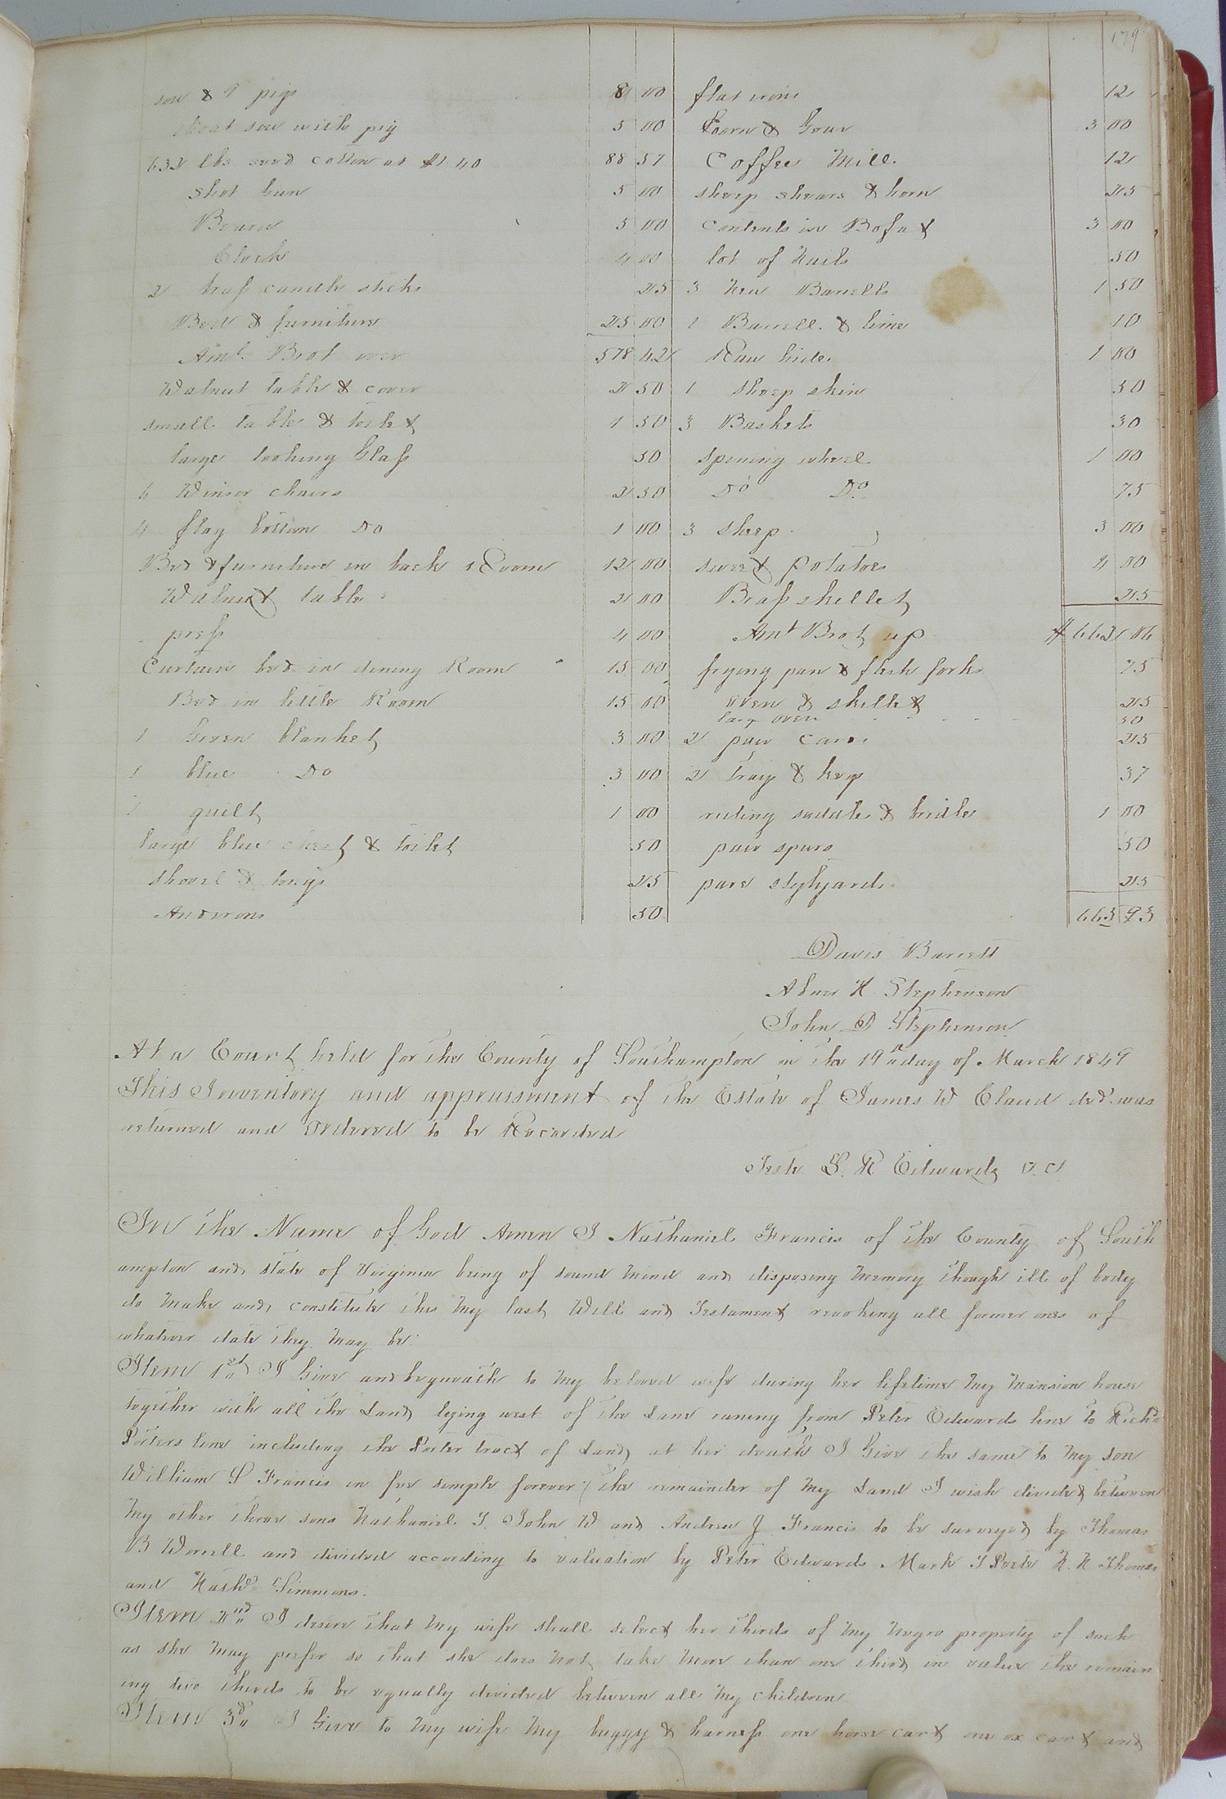 179
sow & 9 pigs 8 00
sow with pig 5 00
632 lbs seed cotton at $1 40 88 57
Shot Gun 5 00
5 00
Clock 4 00
2 brass candle sticks 25
Bed & furniture 25 00
Amt. Brot over 578 42
Walnut table & cover 2 50
small table & toilet 1 50
large looking Glass 50
6 Winsor chairs 2 50
4 flag bottom Do 1 00
Bed & furniture in back Room 12 00
Walnut table 2 00
press 4 00
Curtain bed in dining Room 15 00
Bed in little Room 15 00
1 Green blanket 3 00
1 blue Do 3 00
1 quilt 1 00
large blue chest & toilet 50
shovel & tongs 25
Andirons 50
flat irons 12
3 00
Coffee Mill 12
sheep shears & horn 25
contents in Bofat 3 00
lot of Nails 50
3 New Barrells 1 50
1 Barrell & lime 10
Raw hide 1 00
1 sheep skin 50
3 Baskets 30
spining wheel 1 00
Do Do 75
3 sheep 3 00
sweet potatoes 4 00
Brass skillet 25
Amt Brot up $662 06
frying pan & flesh fork 75
oven & skillet 25
large oven 50
2 pair cards 25
2 trays & keg 37
riding saddle & bridle 1 00
pair spurs 50
pare stylyards 25
665 93
Davis Barrett
Abner H Stephenson
John D Stephenson
At a Court held for the County of Southampton on the 19th day of March 1849
This Inventory and appraisment of the Estate of James W Claud decd. was
returned and Ordered to be Recorded
Teste L. R Edwards C. C.
In the Name of God Amen I Nathaniel Francis of the County of South
ampton and state of Virginia being of sound Mind and disposing Memory though ill of body
do Make and constitute this My last Will and Testament revoking all former ones of
whatever date they may be
Item 1st I Give and bequeath to My beloved wife during her lifetime My Mansion house
together with all the Land lying west of the Lane runing from Peter Edwards line to Richd
Porters line including the Porter tract of Land, at her death I Give the same to My son
William S Francis in fee simple forever; the remainder of My Land I wish divided between
My other three sons Nathaniel T. John W and Andrew J Francis to be surveyed by Thomas
B Worrell and divided according to valuation by Peter Edwards Mark T Porter Thomas
and Nathl. Simmons.
Item 2nd I desire that My wife shall select her thirds of My Negro property of such
as she May prefer so that she does Not take More than one third in value the remain
ing two thirds to be equally divided between all My children
Item 3d. I Give to My wife My buggy & harness one horse cart one ox cart and